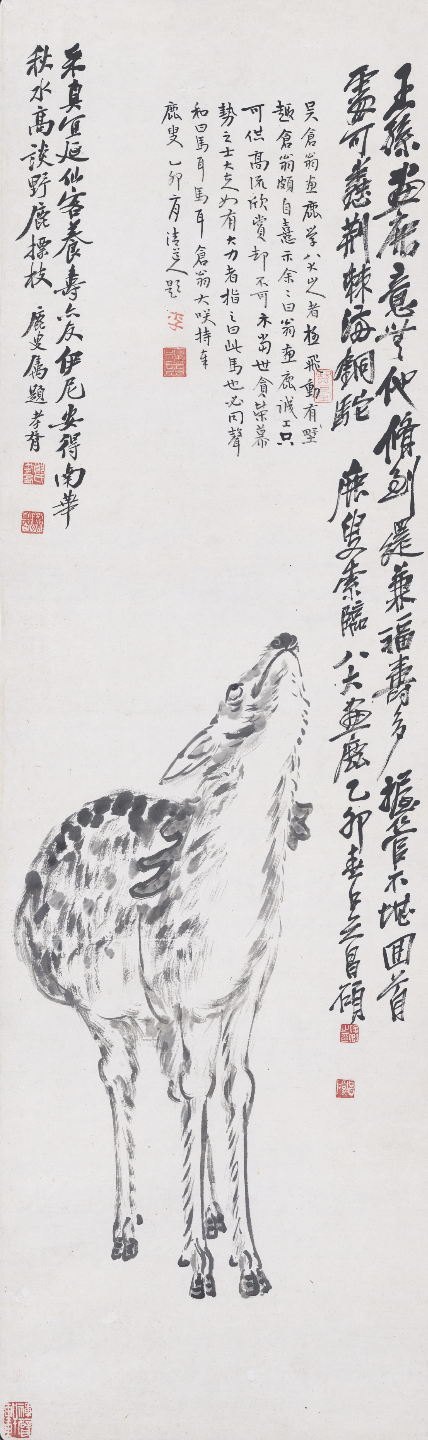 王孫畫鹿意無他脩到還兼福壽多握管不堪回首
處可憐荆棘滿銅駝　鹿叟索臨八大畫鹿乙卯春昌碩
吳倉翁畫鹿學八大山人者極飛動有野
趣倉翁頗自憙示余余曰翁畫鹿誠工只
可供高流欣賞却不可示當世貪榮慕
勢之士大夫如有大力者指之曰此馬也必同聲
和曰馬耳馬耳倉翁大咲持奉
鹿叟乙卯月清道人題
采真宜延仙客養壽亦友伊尼安得南華
秋水高談野鹿標枝　鹿叟屬題　孝胥